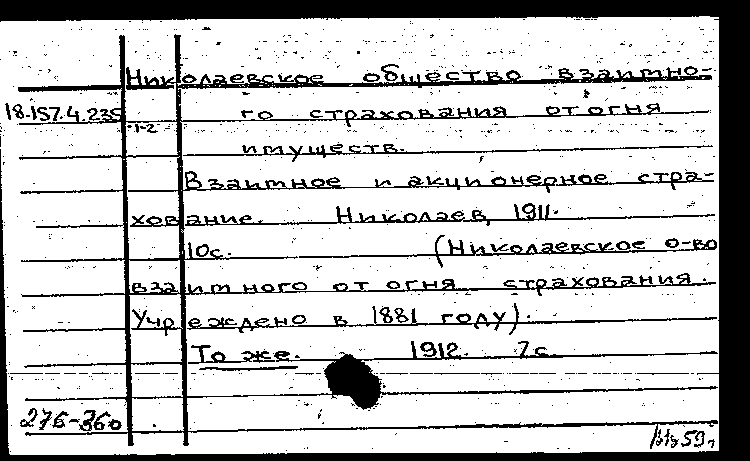 Николаевское общество взаимно-
18.157.4.235
1-2
го страхования от огня
имуществ.
Взаимное и акционерное стра-
хование. Николаев, 1911.
10с. (Николаевское о-во
взаимного от огня страхования.
Учреждено в 1881 году).
То же. 1912. 7с.
276-360
59г